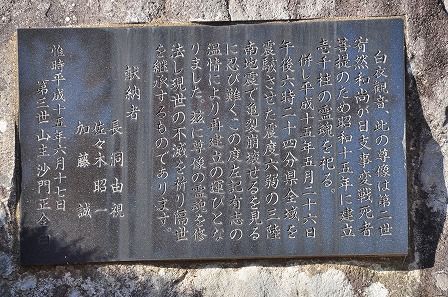 白衣観音 此の尊像は第二世
寄然和尚が日支事変戦死者
菩提のため昭和十五年に建立
壱千柱の霊魂を祀る。
併し平成十五年五月二十六日
午後六時二十四分県全域を
震駭させた震度六弱の三陸
南地震で亀裂崩壊せるを見る
に忍び難くこの度左記有志の
温情により再建立の運びとな
りました。茲に尊像の霊魂を修
法し現世の不滅を祈り隔世
を継承するものであります。
献納者
長洞由視
佐々木昭一
加藤誠
惟時平成十五年六月十七日
第三世山主沙門正全